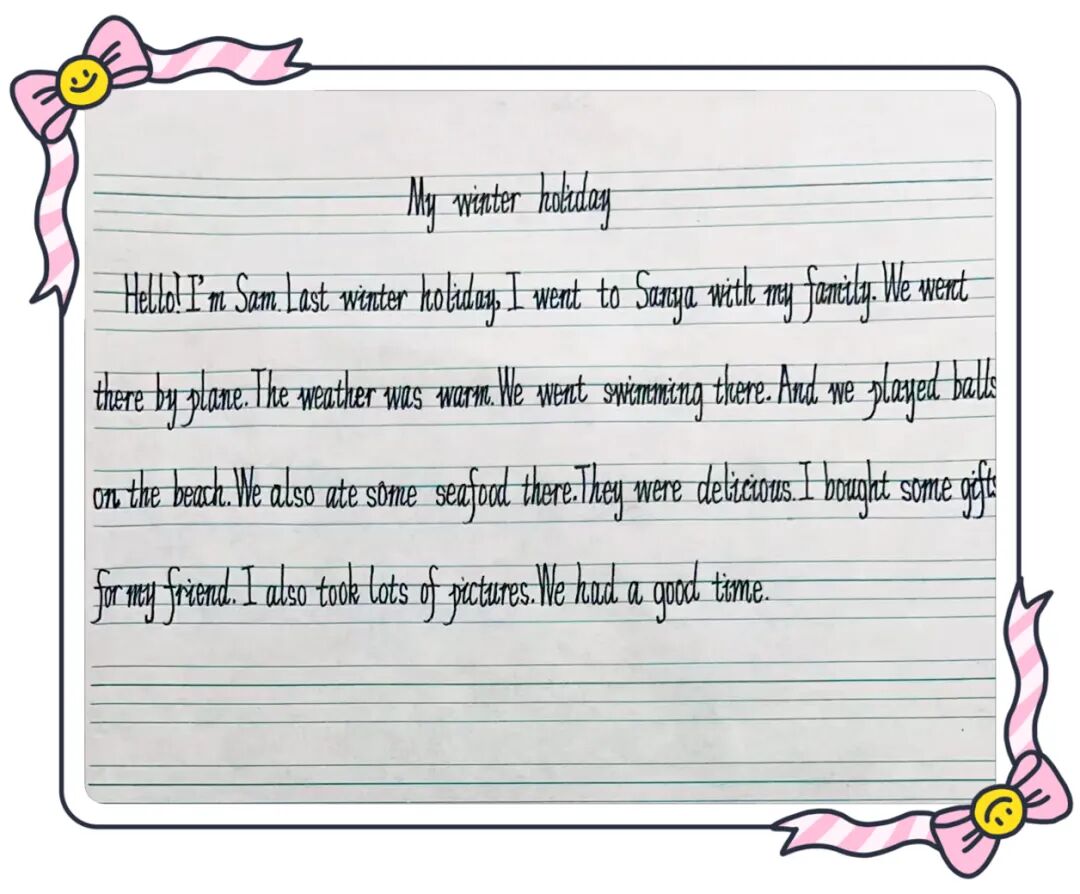 My winter holiday
Hello! I'm Sam. Last winter holiday, I went to Sanya with my family. We went
there by plane. The weather was warm. We went swimming there. And we played balls
on the beach. We also ate some seafood there. They were delicious. I bought some gifts
for my friend. I also took lots of pictures. We had a good time.